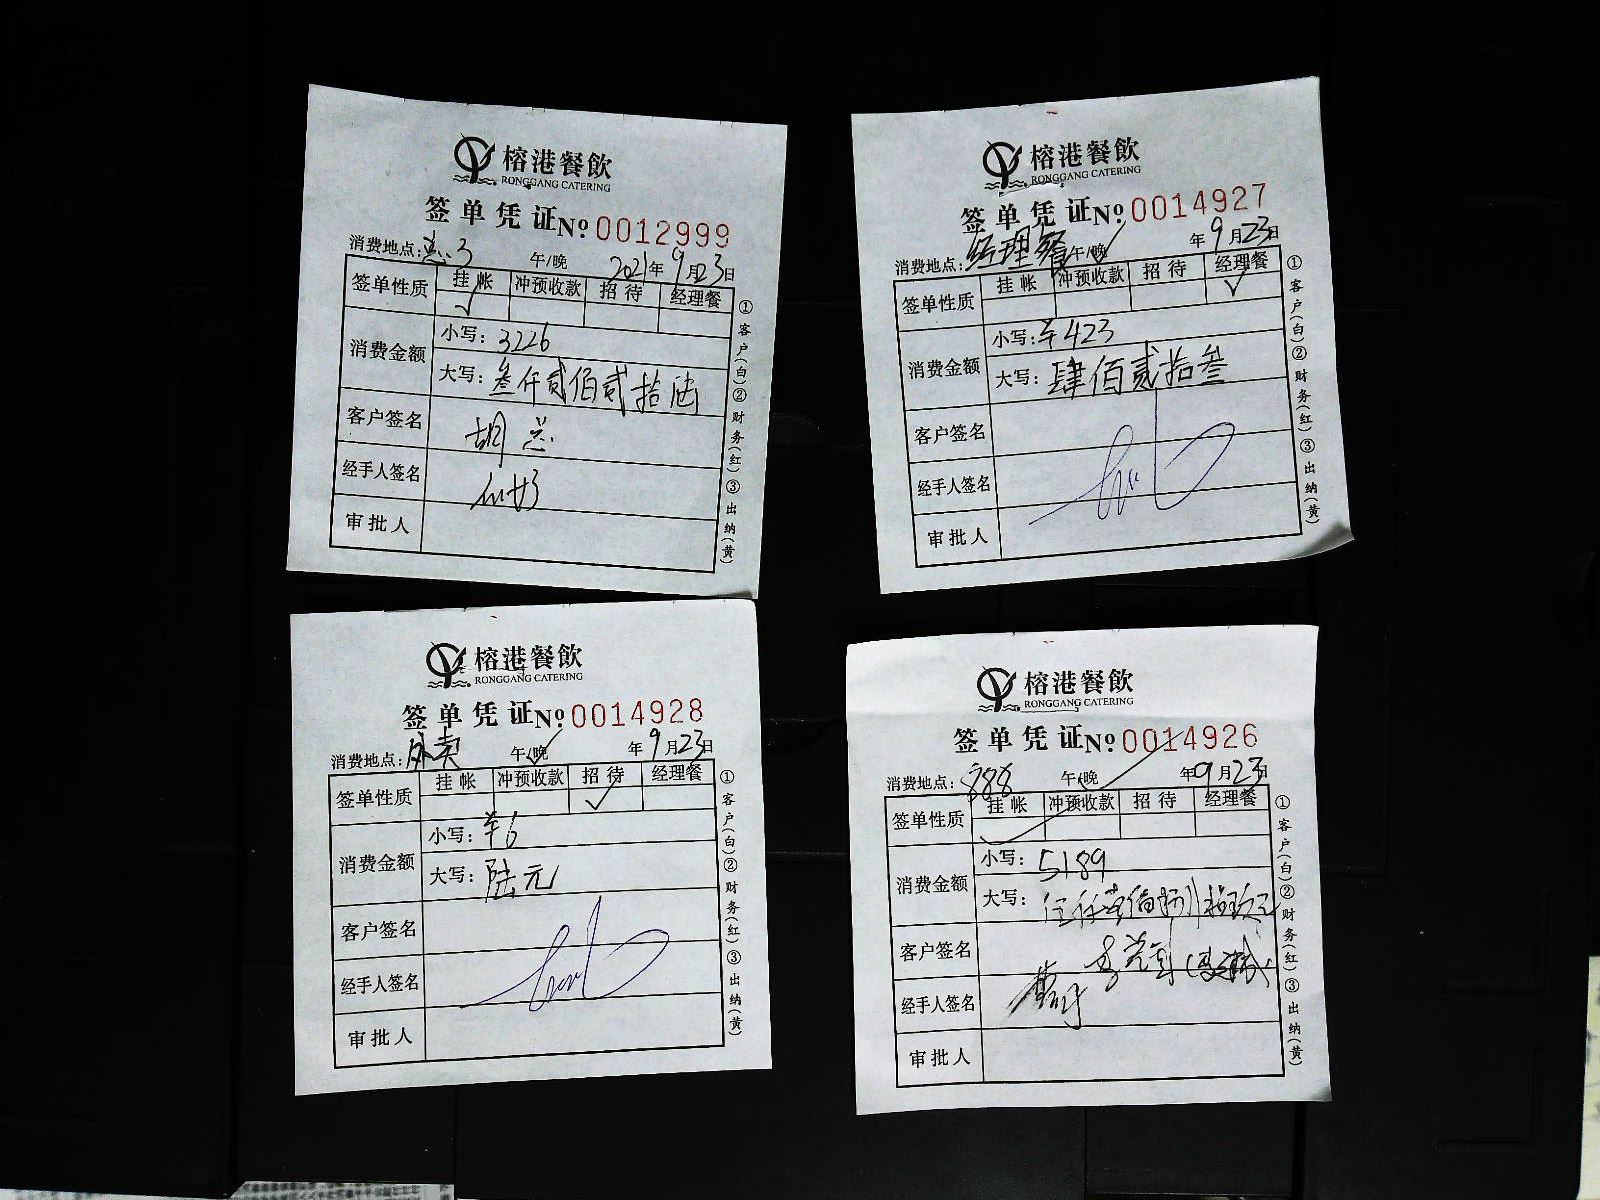 榕港餐飲
RONGGANG CATERING
签单凭证 Nº 0012999
消费地点: 总3 午/晚 2021年9月23日
签单性质 挂帐 冲预收款 招待 经理餐
✓
消费金额 小写: 3226
大写: 叁仟贰佰贰拾陆
客户签名 胡总
经手人签名
审批人
①客户(白)②财务(红)③出纳(黄)
榕港餐飲
RONGGANG CATERING
签单凭证 Nº 0014927
消费地点: 经理餐 午/晚 ✓ 年9月23日
签单性质 挂帐 冲预收款 招待 经理餐
✓
消费金额 小写: ¥423
大写: 肆佰贰拾叁
客户签名
经手人签名
审批人
①客户(白)②财务(红)③出纳(黄)
榕港餐飲
RONGGANG CATERING
签单凭证 Nº 0014928
消费地点: 外卖 午/晚 ✓ 年9月23日
签单性质 挂帐 冲预收款 招待 经理餐
✓
消费金额 小写: ¥6
大写: 陆元
客户签名
经手人签名
审批人
①客户(白)②财务(红)③出纳(黄)
榕港餐飲
RONGGANG CATERING
签单凭证 Nº 0014926
消费地点: 888 午/晚 ✓ 年9月23日
签单性质 挂帐 冲预收款 招待 经理餐
✓
消费金额 小写: 5189
大写: 伍仟壹佰捌拾玖元
客户签名
经手人签名
审批人
①客户(白)②财务(红)③出纳(黄)